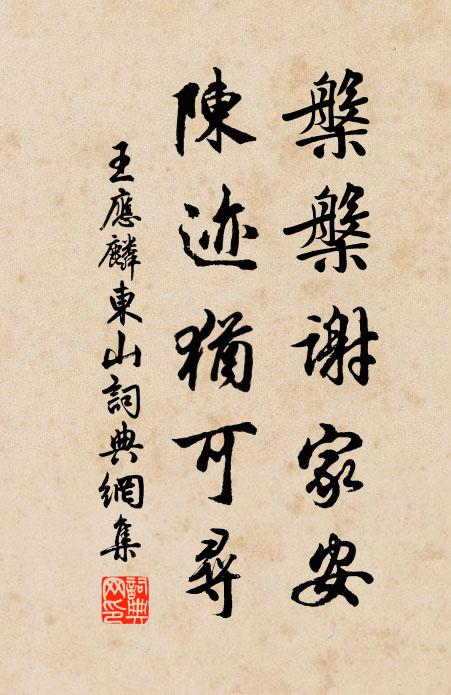 槃槃謝家安
陳迹猶可尋
王應麟東山詞典網集
詞典網印